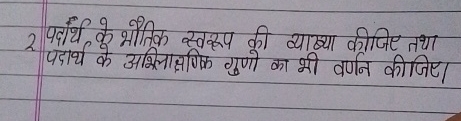 2 पदार्थ के भौतिक स्वरूप की व्याख्या कीजिए तथा
पदार्थ के अभिलाक्षणिक गुणो का भी वर्णन कीजिए।